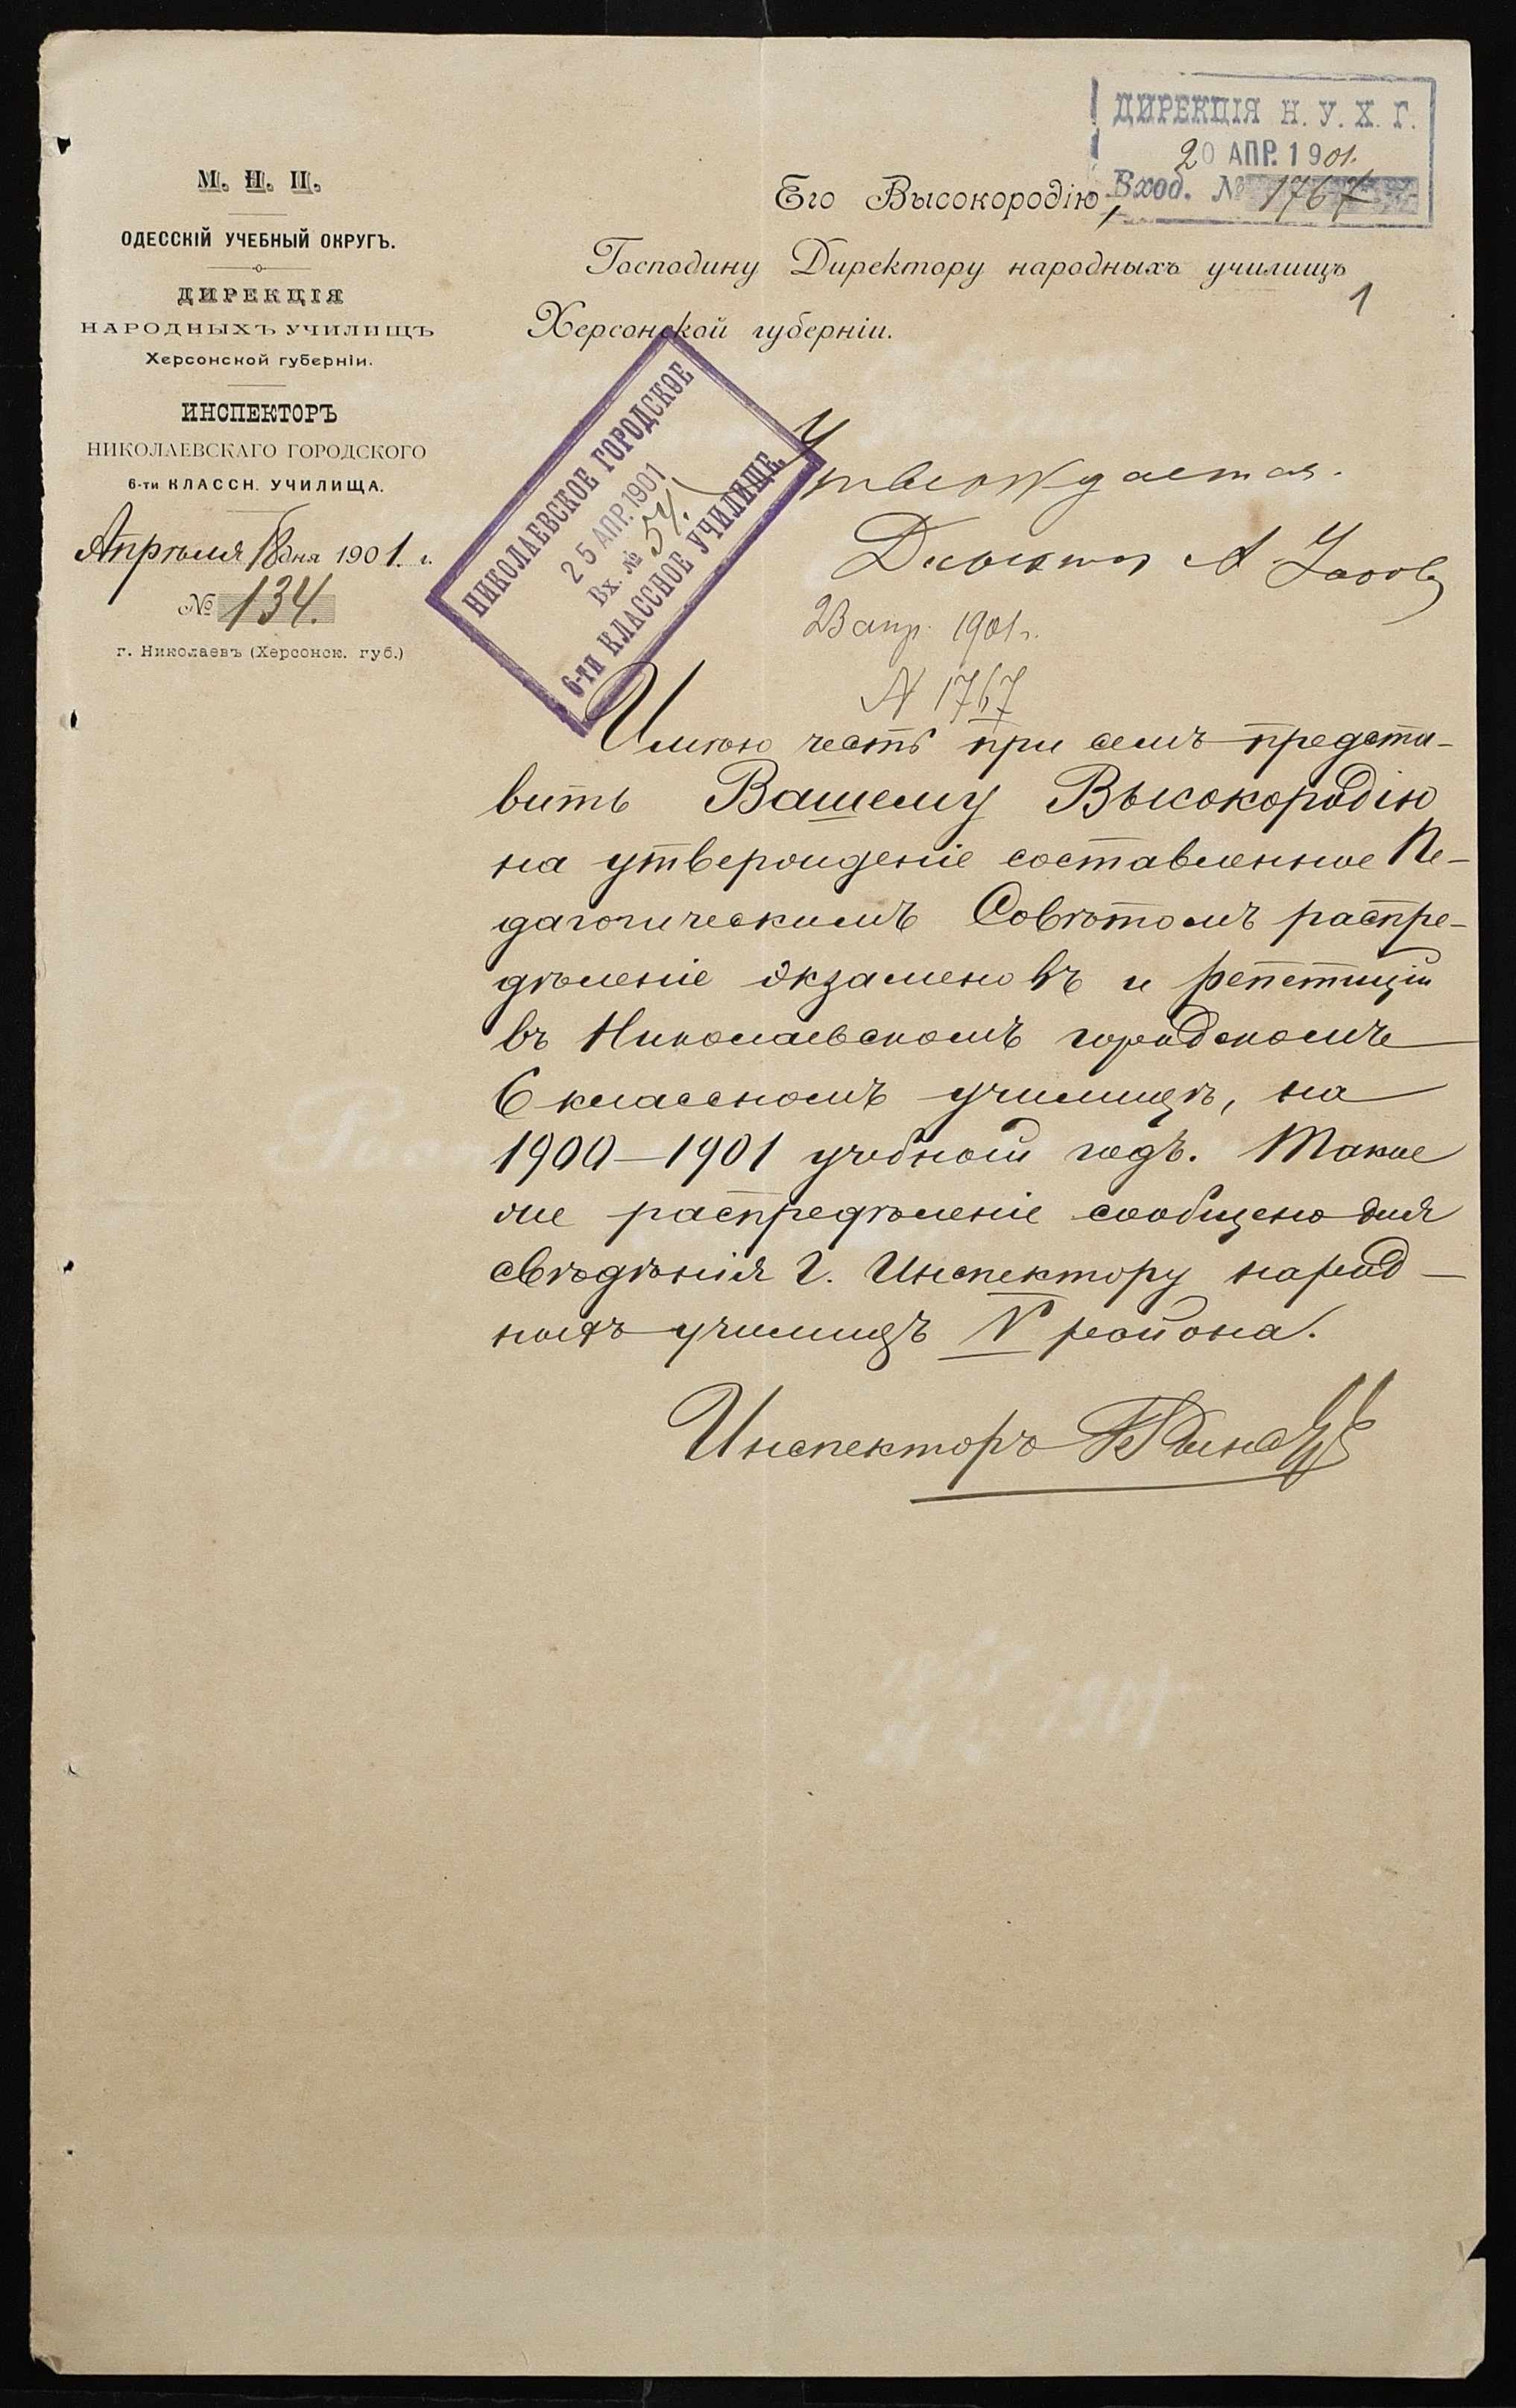 М. Н. П.
ОДЕССКІЙ УЧЕБНЫЙ ОКРУГЪ.
ДИРЕКЦІЯ
НАРОДНЫХЪ УЧИЛИЩЪ
Херсонской губерніи.
ИНСПЕКТОРЪ
НИКОЛАЕВСКАГО ГОРОДСКОГО
6-ти КЛАССН. УЧИЛИЩА.
Апрѣля 18 дня 1901. г.
№ 134.
г. Николаевъ (Херсонск. губ.)
ДИРЕКЦІЯ Н. У. Х. Г.
20 АПР. 1901.
Вход. № 1767
Его Высокородію,
Господину Директору народныхъ училищъ
1
Херсонской губерніи.
НИКОЛАЕВСКОЕ ГОРОДСКОЕ
25 АПР. 1901
Вх. № 54.
6-ти КЛАССНОЕ УЧИЛИЩЕ.
Утверждается.
Директор А.
23 апр. 1901 г.
N 1767
Имѣю честь при семъ предста-
вить Вашему Высокородію
на утвержденіе составленное Пе-
дагогическимъ Совѣтомъ распре-
дѣленіе экзаменовъ и репетицій
въ Николаевскомъ городскомъ
6 классномъ училищѣ, на
1900–1901 учебный годъ. Такое
же распредѣленіе сообщено для
свѣдѣнія Г. Инспектору народ-
ныхъ училищъ V района.
Инспекторъ